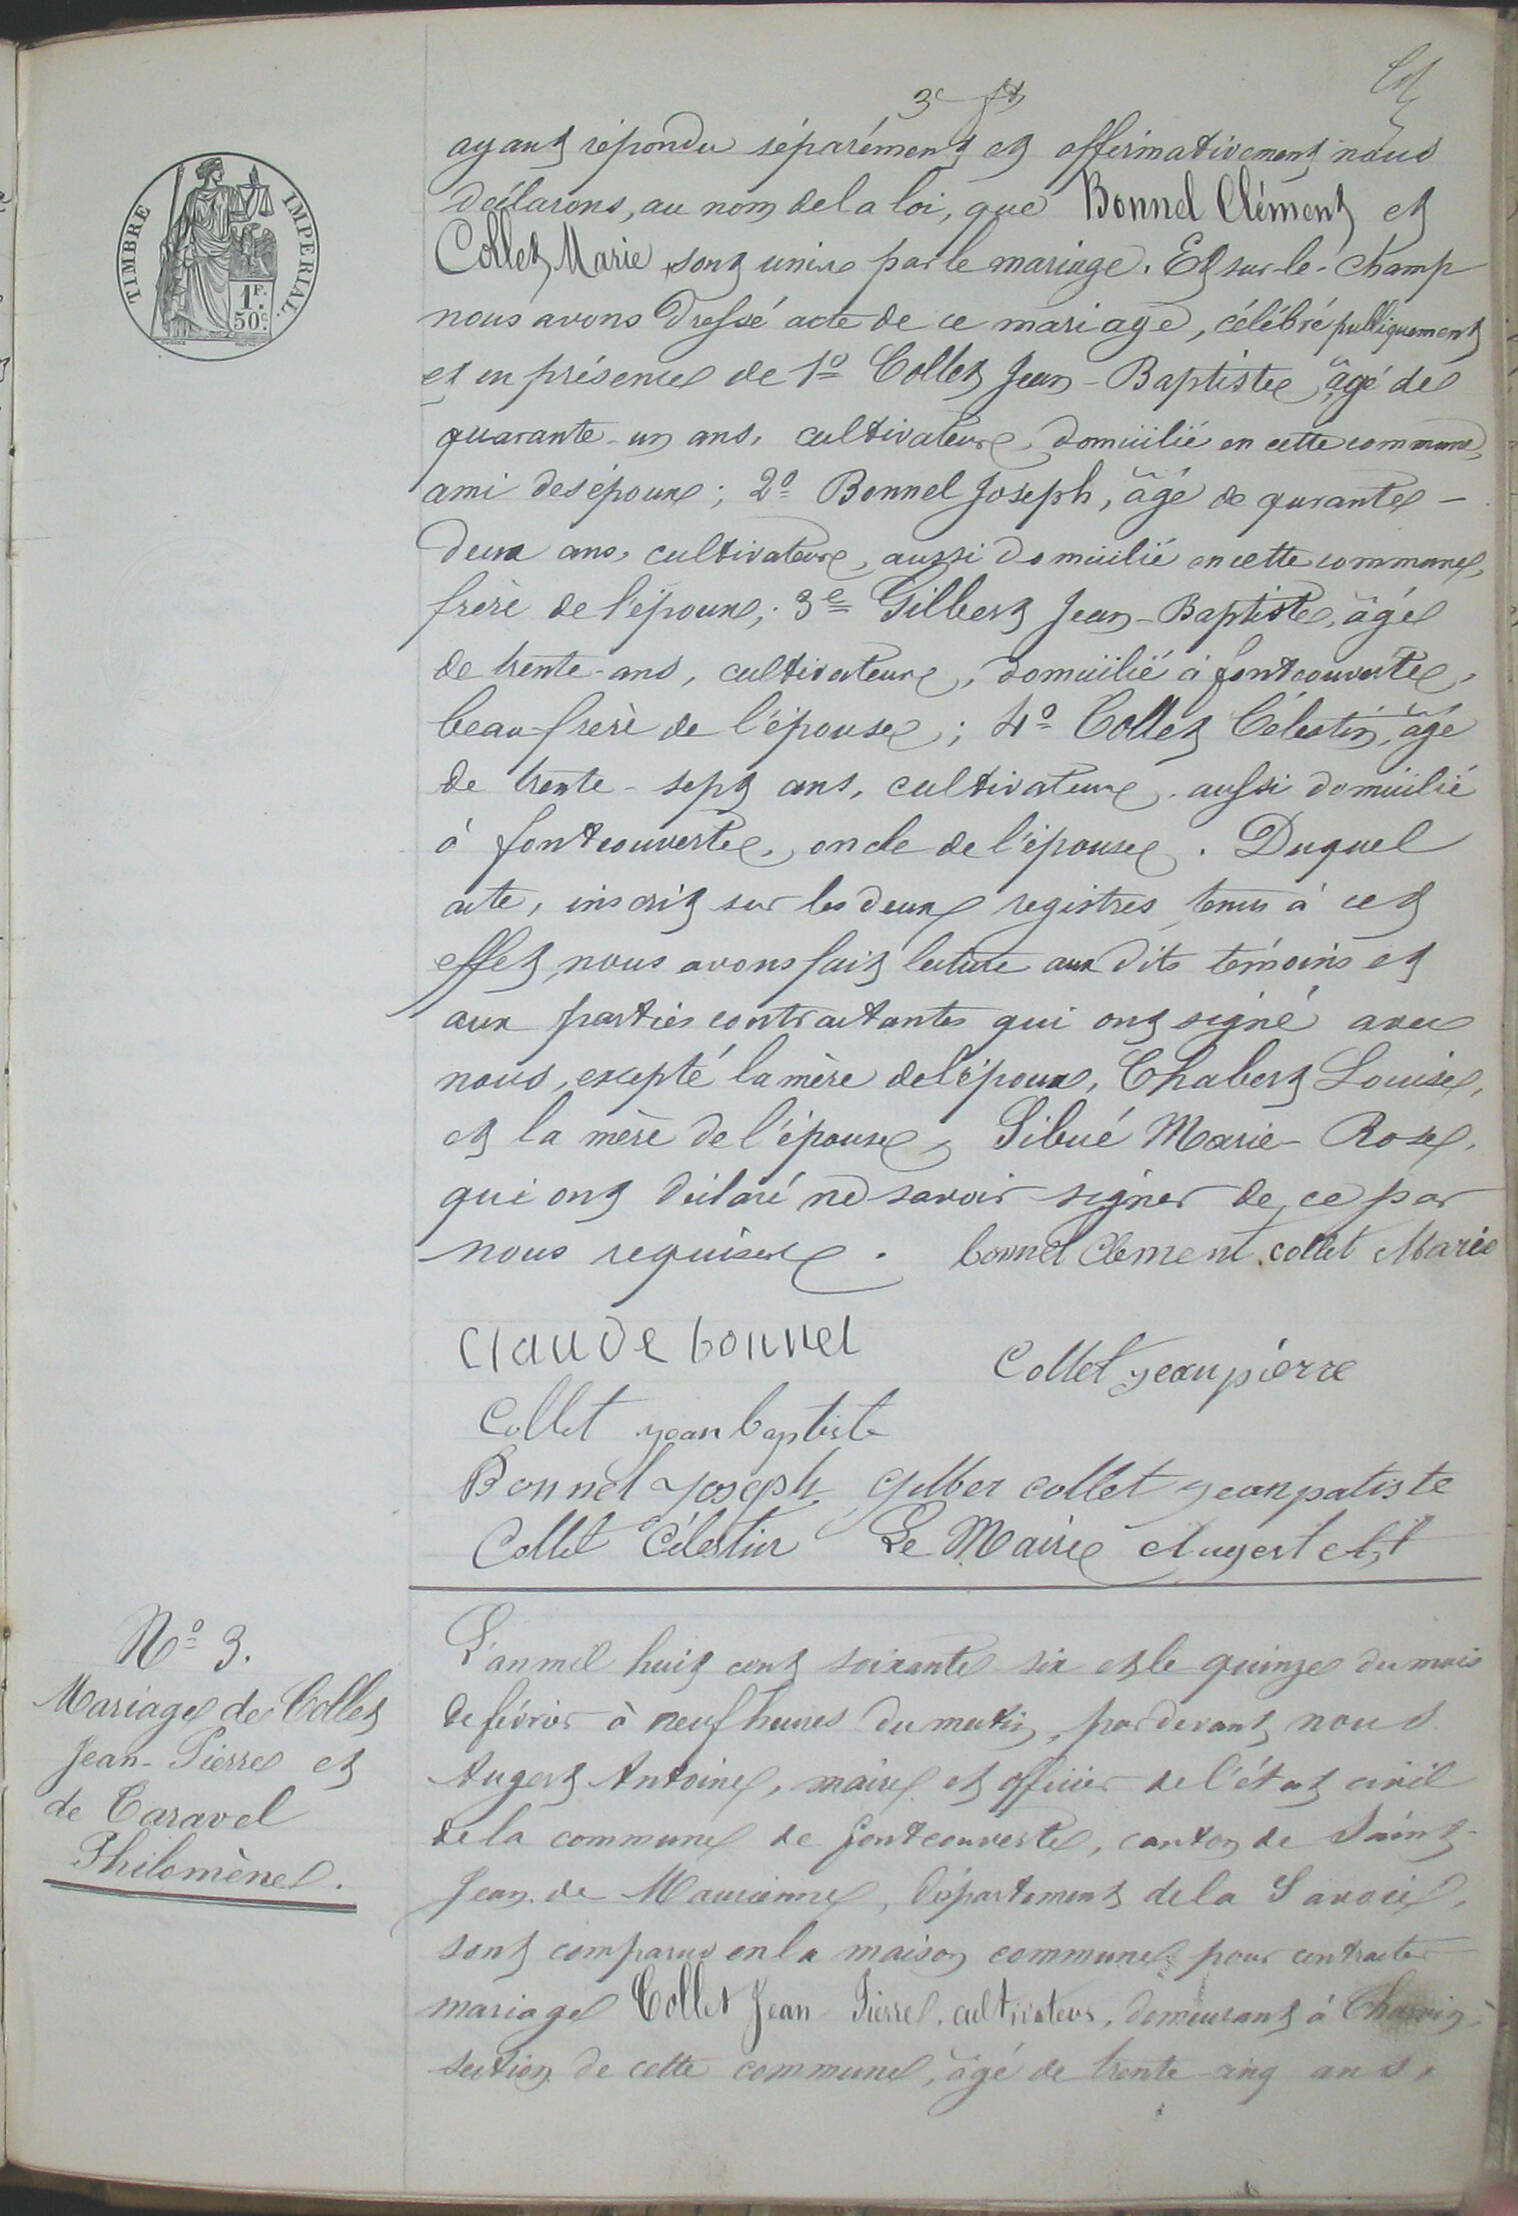 3e ft
TIMBRE IMPERIAL.
1F.
50c.
ayant répondu séparément et affirmativement nous
déclarons, au nom de la loi, que Bonnel Clément et
Collet Marie sont unis par le mariage. Et sur-le-champ
nous avons dressé acte de ce mariage, célébré publiquement
et en présence de 1º Collet Jean-Baptiste, âgé de
quarante-un ans, cultivateur, domicilié en cette commune,
ami des époux; 2º Bonnel Joseph, âgé de qurante-
deux ans, cultivateur, aussi domicilié en cette commune,
frère de l'époux; 3e Gilbert Jean-Baptiste, âgé
de trente-ans, cultivateur, domicilié à fontcouverte,
beau-frère de l'épouse; 4º Collet Célestin, âgé
de trente-sept ans, cultivateur, aussi domicilié
à fontcouverte, oncle de l'épouse. Duquel
acte, inscrit sur les deux registres tenus à cet
effet, nous avons fait lecture aux dits témoins et
aux parties contractantes qui ont signé avec
nous, excepté la mère de l'époux, Chabert Louise,
et la mère de l'épouse, Sibué Marie-Rose,
qui ont déclaré ne savoir signer de ce par
nous requises. bonnel Clement collet Marie
Claude bonnel
Collet jean pierre
Collet jean baptiste
Bonnel joseph gilber collet jean patiste
Collet Célestin Le Maire Augert Ant
Nº 3.
Mariage de Collet
Jean-Pierre et
de Caravel
Philomène.
L'an mil huit cent soixante six et le quinze du mois
de février à neuf heures du matin, pardevant nous
Augert Antoine, maire et officier de l'état civil
de la commune de fontcouverte, canton de Saint-
Jean-de Maurienne, département de la Savoie,
sont comparus en la maison commune pour contracter
mariage Collet Jean-Pierre, cultivateur, demeurant à
section de cette commune, âgé de trente-cinq ans,